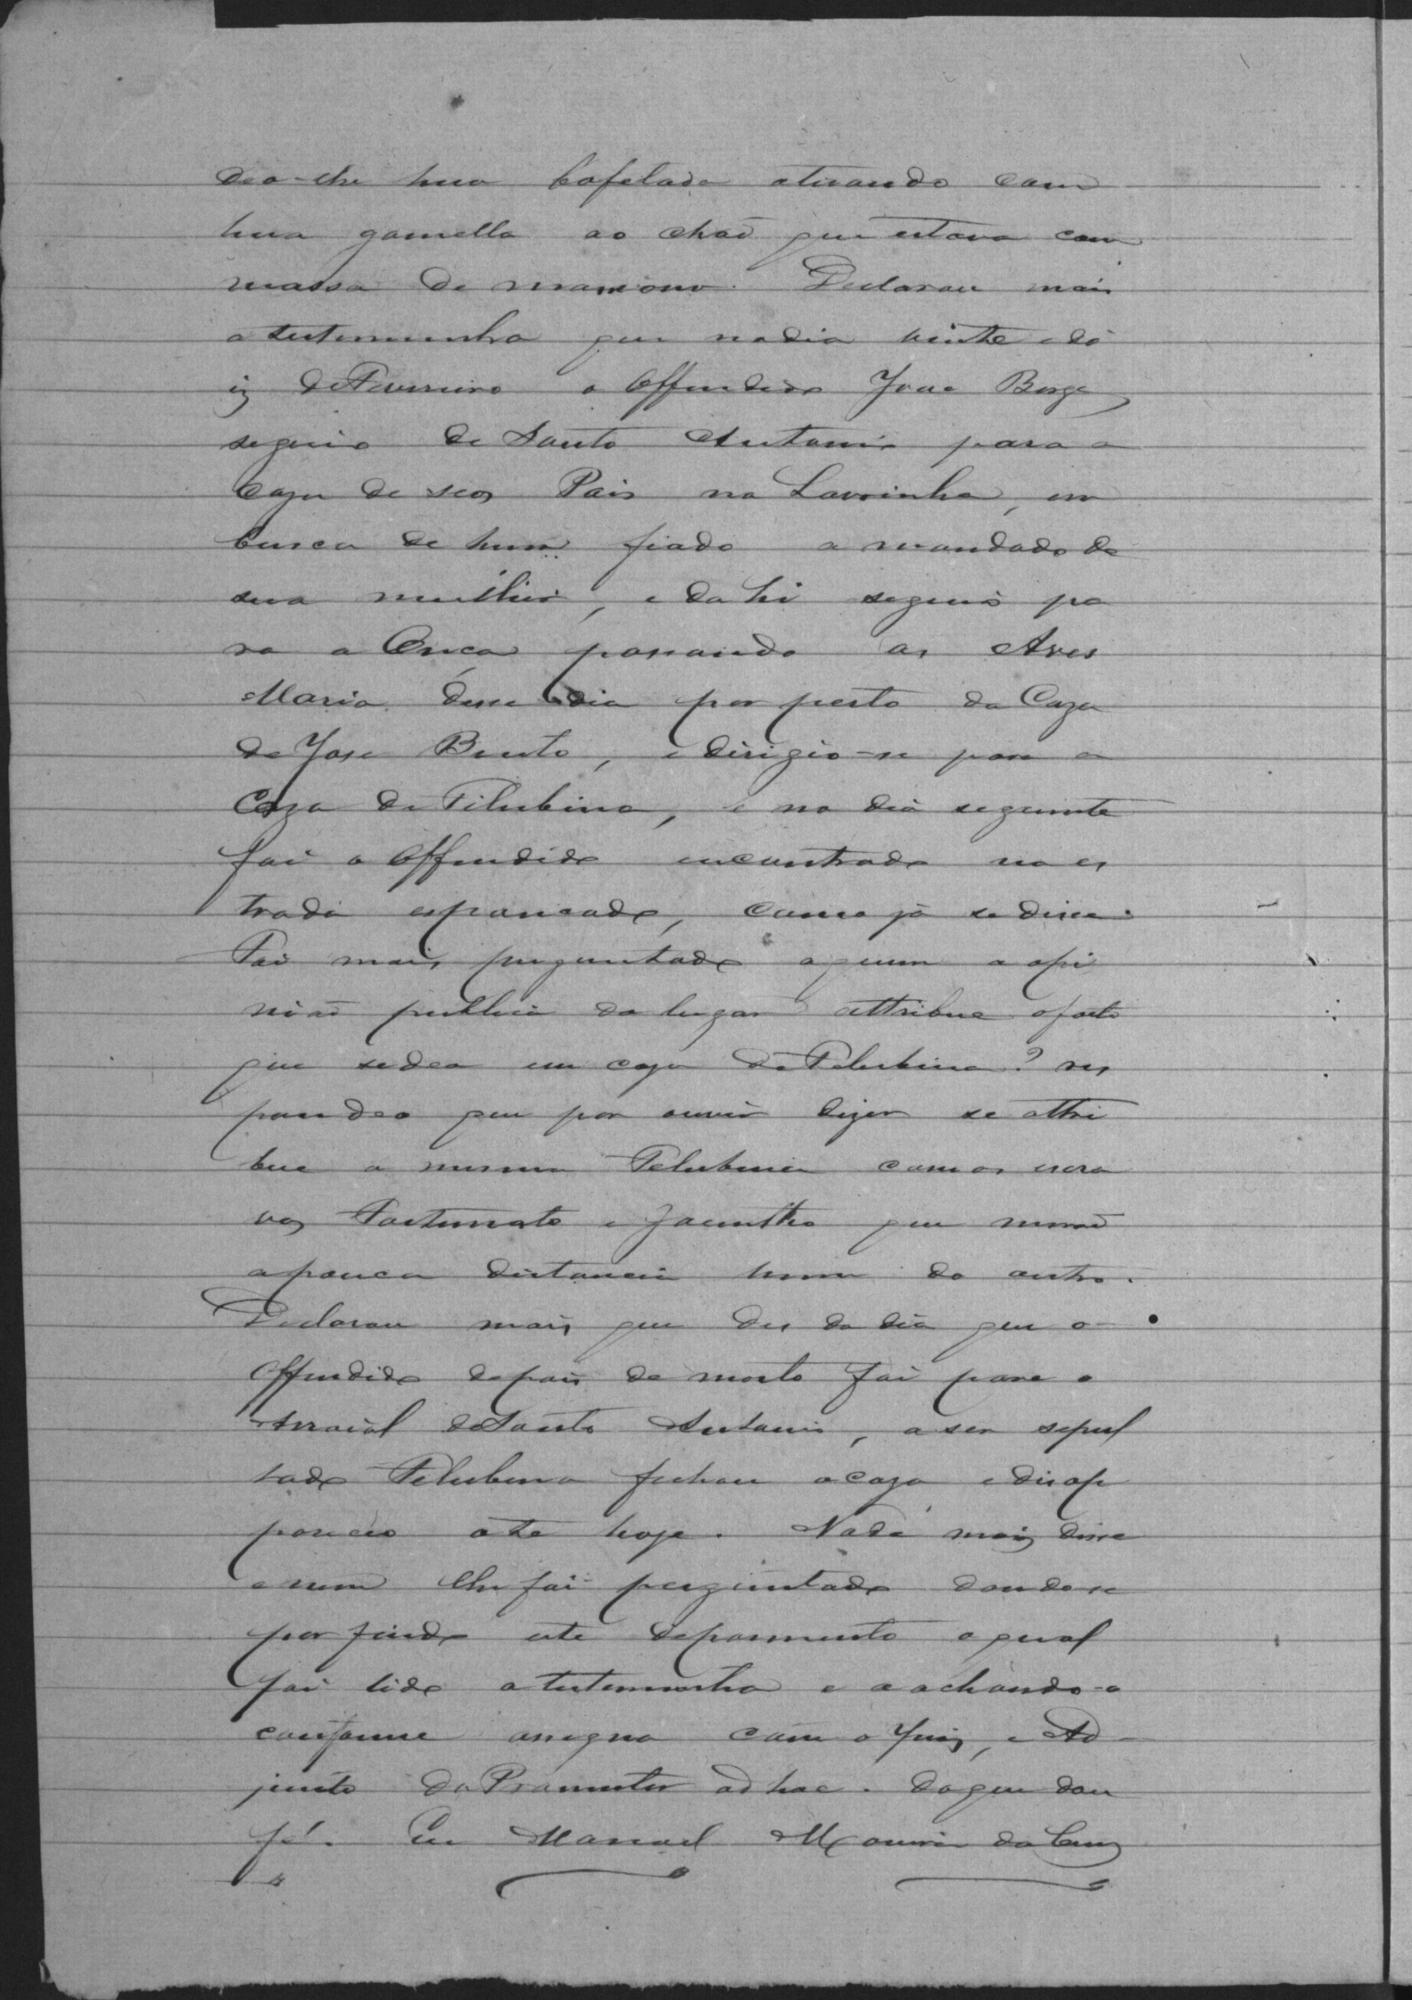 deo-lhe hua bofetada atirando com
hua gamella ao chaõ que estava com
massa de mamono. Declarou mais
a testemunha que nodia vinte e do
iz de Fevereiro o Offendido Joaõ Borge
seguio de Santo Antonio para a
Caza de seos Pais na Lavrinha, em
busca de hum fiado a mandado de
sua mulher, e dahi seguio pa
ra a Onça passando as Aves
Maria desse dia por perto da Caza
de Jose Bento, e dirigio-se para a
Caza de Filisbina, e no dia seguinte
foi o Offendido encontrado na es
trada espancado, como já se disse.
Foi mais perguntado aquem a opi
niaõ publica do lugar attribue o facto
que sedeo em caza de Felisbina? res
pondeo que por ouvir dizer se attri
bue a mesma Felisbina com os escra
vos Fortunato e Jacintho que moraõ
apouca distancia hum do outro.
Declarou mais que des do dia que o
Offendido depois de morto foi para o
Arraial deSanto Antonio, a ser sepul
tado Felisbina fechou a caza e disap
pareceo ate hoje. Nada mais disse
e nem lhe foi perguntado dandose
por findo este depoimento oqual
foi lido a testemunha e a achando-o
conforme assigna com o Juiz, e Ad-
junto do Promotor ad hoc. Doque dou
fé. Eu Manoel Moreira da Cruz